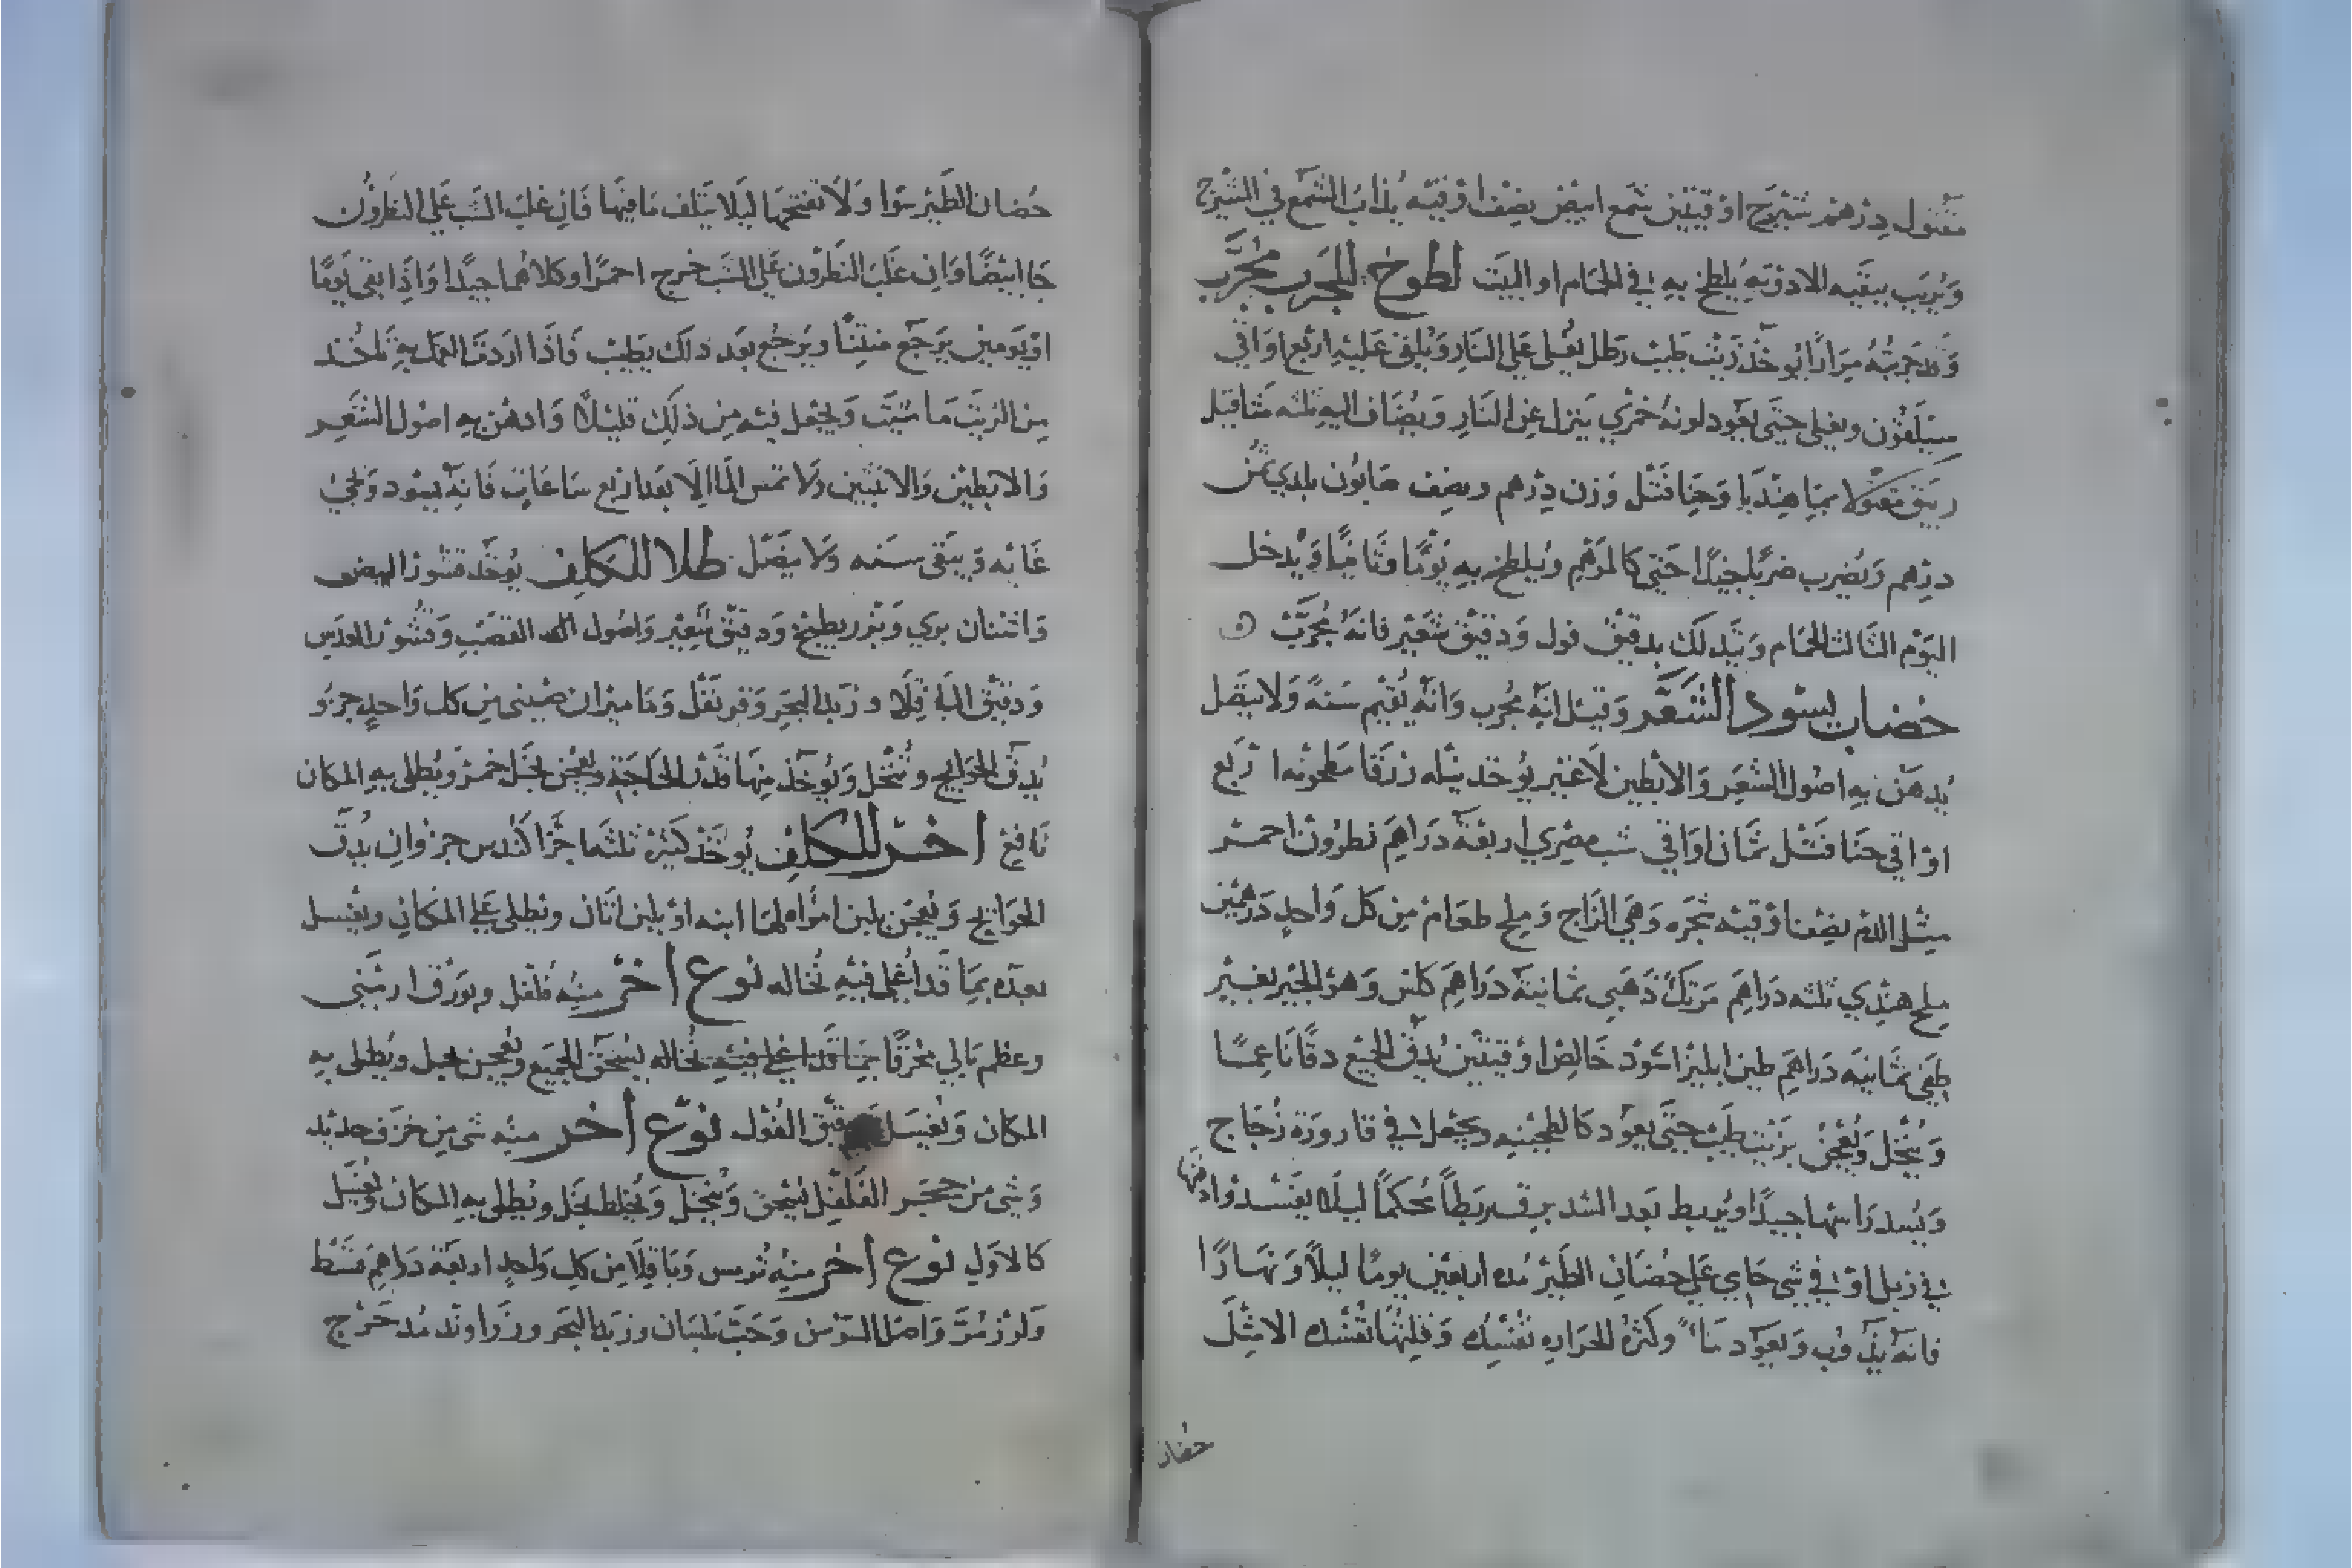 مقتول درهم شيرج اوقيتين شمع ابيض نصف اوقيه يذاب الشمع في الشيرج
ويريب ببقيه الادويه يلطخ به في الحمام او البيت لطوخ للجرب مجرب
وقد جربته مرارا يوخذ زيت طيب رطل يغلي علي النار ويلقي عليه اربع اواقي
سيلقون ويغلي حتي يعود لونه خمري ينزل عن النار ويضاف اليه ثلثه مثاقيل
زيبق مقتولا بما هندبا وحنا فتل وزن درهم ونصف صابون بلدي ثمن
درهم ويضرب ضربا جيدا حتي كالمرهم ويلطخ به يوما وثانيا ويدخل
اليوم الثالث الحمام ويتدلك بدقيق فول ودقيق شعير فانه مجرب
خضاب يسود الشعر وقيل انه مجرب وانه يقيم سنة ولا ينصل
يدهن به اصول الشعر والابطين لا غير يوخذ نيله زرقا مطحونه اربع
اواقي حنا فتل ثمان اواقي شب مصري اربعة دراهم نطرون احمر
مثل الدم نصف اوقيه شجره وهي الزاج وملح طعام من كل واحد درهمين
ملح هندي ثلثه دراهم مرتك ذهبي ثمانية دراهم كلس وهو الجير بغير
طفي ثمانيه دراهم طين ابليز اسود خالص اوقيتين يدق الجميع دقا ناعما
وينخل ويعجن بزيت طيب حتي يعود كالطحينيه ويجعل في قارورة زجاج
ويسد راسها جيدا ويربط بعد الشد برق ربطا محكما ليلا يفسد وادفنها
في زبل او في شي حامي علي حضان الطير مده اربعين يوما ليلا ونهارا
فانه يذوب ويعود ما وكثرة الحراره تفسده وقلتها تفسده الامثل
حضان
حضان الطير سوا ولا تفتحها ليلا يتلف ما فيها فان غلب الشب علي النطرون
جا ابيضا وان غلب النطرون علي الشب خرج احمرا وكلاهما جيدا واذا بقي يوما
او يومين يرجع منتنا ويرجع بعد ذلك يطيب فاذا اردت العمل به تاخذ
من الزيت ما شيت وتجعل فيه من ذلك قليلا وادهن به اصول الشعر
والابطين والانثيين ولا تمس الما الا بعد اربع ساعات فانه يسود ويجي
غايه ويبقي سنه ولا ينصل طلا للكلف يوخذ قشور البيض
واشنان بوي وبزر بطيخ ودقيق شعير واصول القصب وقشور العدس
ودقيق الباقلا وزبد البحر وقرنفل وماميران صيني من كل واحد جزو
يدق الحوايج وتنخل ويوخذ منها قدر الحاجة ويعجن بخل خمر ويطلي به المكان
نافع اخر للكلف يوخذ كثيرة ثلثما جزا كندس جزوان يدق
الحوايج ويعجن بلبن امراه لها ابنه او بلبن اتان ويطلي علي المكان ويغسل
بعده بما قد اغلي فيه نخاله نوع اخر منه فلفل وبورق ارمني
وعظم بالي محرقا بما قد اغلي فيه نخاله يسحق الجميع ويعجن بعسل ويطلي به
المكان ويغسل بدقيق الفول نوع اخر منه شي من خزف جديد
وشي من حجر الفلفل يسحق وينخل ويخلط بخل ويطلي به المكان ويغسل
كالاول نوع اخر منه ترمس وباقلا من كل واحد اربعة دراهم قسط
ولوز مر واصل السوسن وحب بلسان وزبد البحر وزراوند مدحرج